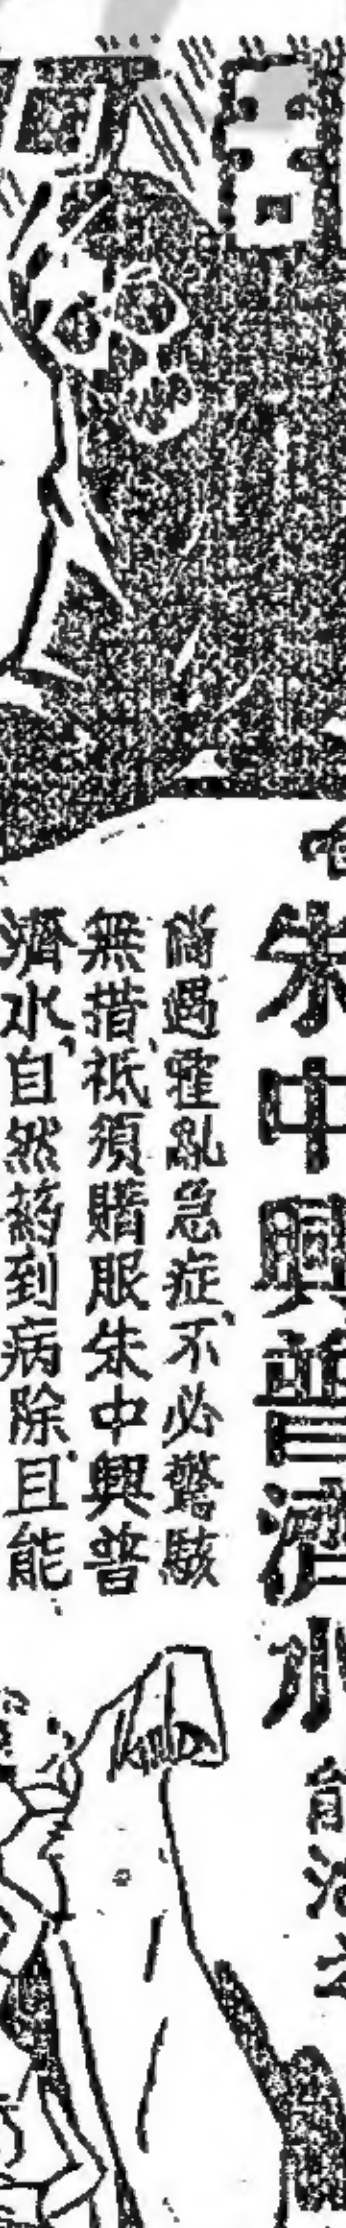 朱中興普濟水
能治之
倘遇霍亂急症、不必驚駭
無措、祇須購服朱中興普
濟水、自然葯到病除、且能